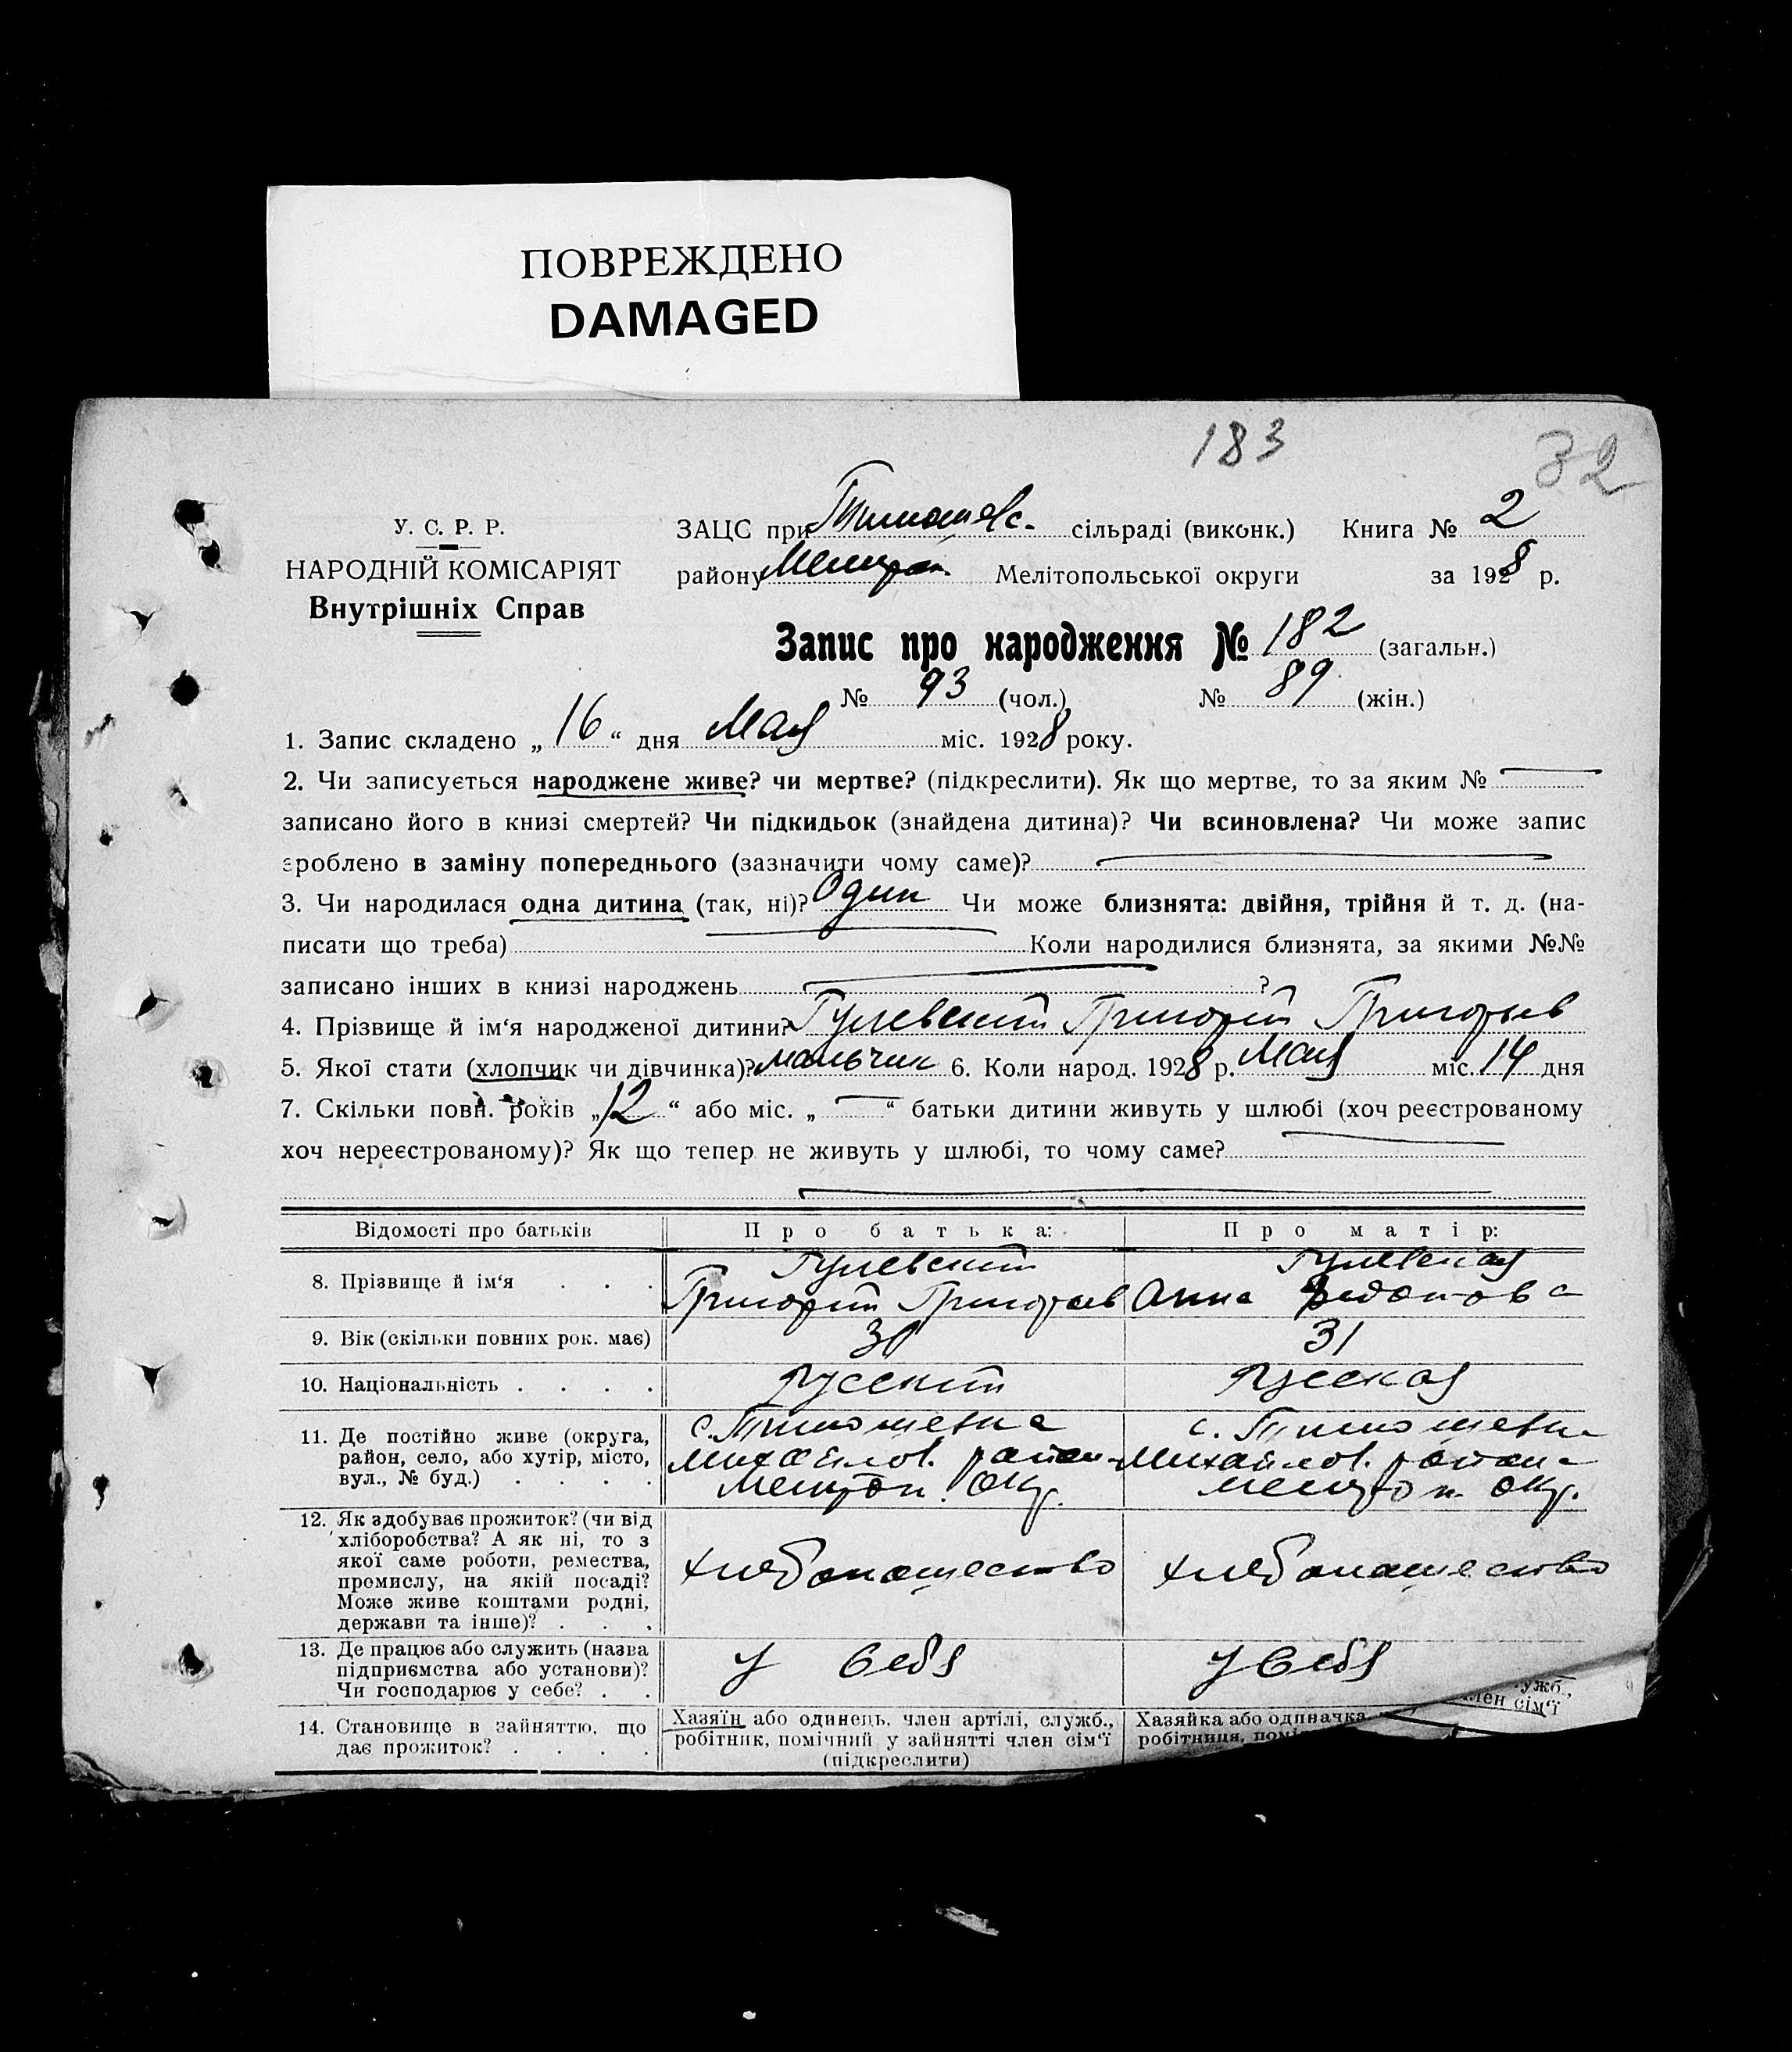 ПОВРЕЖДЕНО
DAMAGED
183
32
У. С. Р. Р.
НАРОДНІЙ КОМІСАРІЯТ
Внутрішніх Справ
ЗАЦС при Тимошевс. сільраді (виконк.) Книга № 2
району Мелитоп. Мелітопольської округи за 1928 р.
Запис про народження № 182 (загальн.)
№ 93 (чол.) № 89 (жін.)
1. Запис складено „16“ дня Мая міс. 1928 року.
2. Чи записується народжене живе? чи мертве? (підкреслити). Як що мертве, то за яким №
записано його в книзі смертей? Чи підкидьок (знайдена дитина)? Чи всиновлена? Чи може запис
зроблено в заміну попереднього (зазначити чому саме)?
3. Чи народилася одна дитина (так, ні)? Один Чи може близнята: двійня, трійня й т. д. (на-
писати що треба) Коли народилися близнята, за якими №№
записано інших в книзі народжень ?
4. Прізвище й ім‘я народженої дитини? Гулевский Григорий Григорьев
5. Якої стати (хлопчик чи дівчинка)? мальчик 6. Коли народ. 1928 р. Мая міс. 14 дня
7. Скільки повн. років „12“ або міс. „ “ батьки дитини живуть у шлюбі (хоч реєстрованому
хоч нереєстрованому)? Як що тепер не живуть у шлюбі, то чому саме?
Відомості про батьків Про батька: Про матір:
8. Прізвище й ім‘я . . . Гулевский Гулевская
Григорий Григорьев Анна Федотова
9. Вік (скільки повних рок. має) 31
10. Національність . . . . Русский Русская
11. Де постійно живе (округа, район, село, або хутір, місто, вул., № буд.) . . . .
с. Тимошевка с. Тимошевка
Михайлов. район Михайлов. района
Мелитоп. Окр. Мелитоп. Окр.
12. Як здобуває прожиток? (чи від
хліборобства? А як ні, то з
якої саме роботи, ремества,
промислу, на якій посаді?
Може живе коштами родні,
держави та інше)? . . .
хлебопашество хлебопашество
13. Де працює або служить (назва
підприємства або установи)?
Чи господарює у себе? . .
у себя у себя
14. Становище в зайняттю, що
дає прожиток? . . . .
Хазяїн або одинець, член артілі, служб.,
робітник, помічний у зайнятті член сім‘ї
(підкреслити)
Хазяйка або одиначка
робітниця,
ужб.,
член сім‘ї